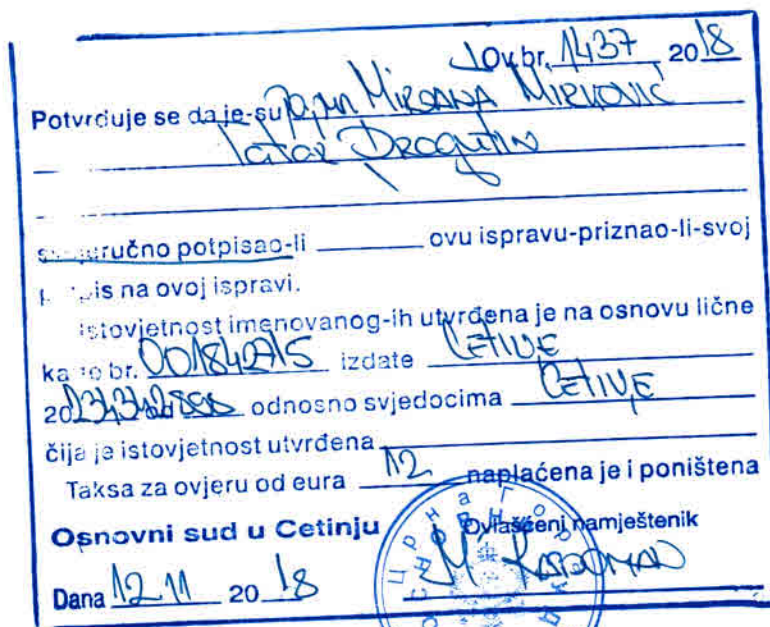 Ov.br. 1437 2018
Potvrđuje se da je-su MIRJANA MIRKOVIĆ
DRAGUTIN
potpisao-li ovu ispravu-priznao-li-svoj
na ovoj ispravi.
istovjetnost imenovanog-ih utvrđena je na osnovu lične
br. 001842715 izdate CETINJE
20 odnosno svjedocima CETINJE
čija je istovjetnost utvrđena
Taksa za ovjeru od eura 12 naplaćena je i poništena
Osnovni sud u Cetinju Ovlašćeni namještenik
Dana 12.11 2018
Црна Гора